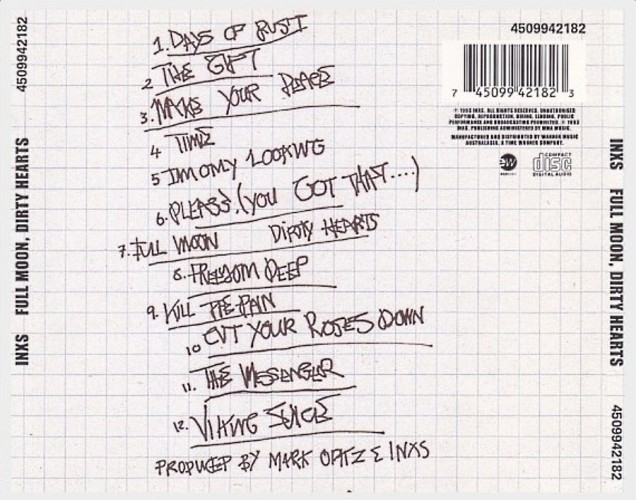 4509942182
1. DAYS OF RUST
2 THE GIFT
3. MAKE YOUR PEACE
4 TIME
5 IM ONLY LOOKING
6. PLEASE.(YOU GOT THAT....)
7. FULL MOON DIRTY HEARTS
8. FREEDOM DEEP
9. KILL THE PAIN
10 CUT YOUR ROSES DOWN
11. THE MESSENGER
12. VIKING JUICE
PRODUCED BY MARK OPITZ & INXS
4509942182
INXS FULL MOON, DIRTY HEARTS
7 45099 42182 3
℗ 1993 INXS. ALL RIGHTS RESERVED. UNAUTHORISED
COPYING, REPRODUCTION, HIRING, LENDING, PUBLIC
PERFORMANCE AND BROADCASTING PROHIBITED. © 1993
INXS. PUBLISHING ADMINISTERED BY MMA MUSIC.
MANUFACTURED AND DISTRIBUTED BY WARNER MUSIC
AUSTRALASIA, A TIME WARNER COMPANY.
COMPACT
disc
DIGITAL AUDIO
INXS FULL MOON, DIRTY HEARTS
4509942182